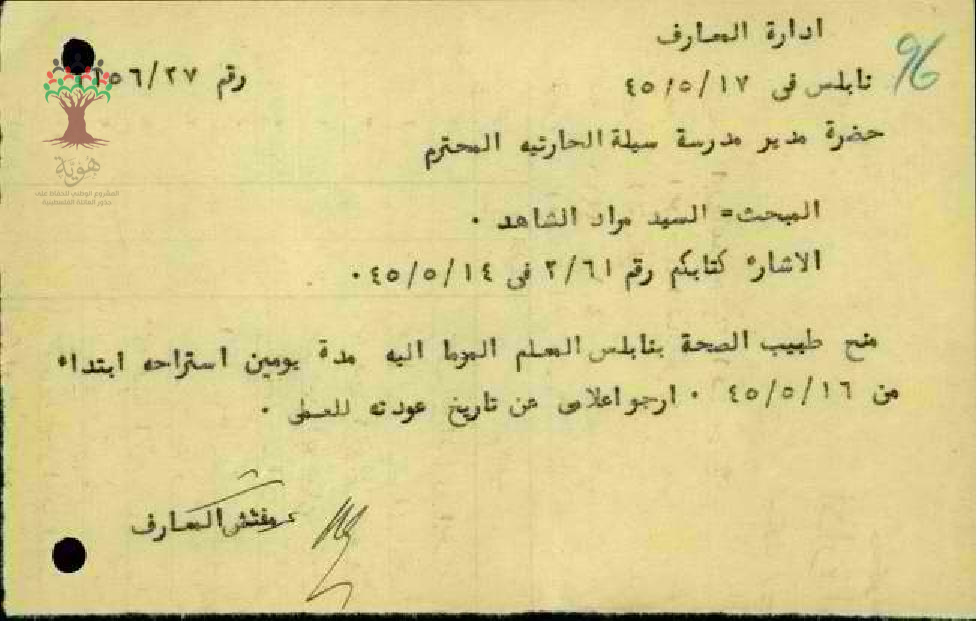 ادارة المعارف
96
نابلس فى ٤٥/٥/١٧
رقم ١٥٦/٢٧
حضرة مدير مدرسة سيلة الحارثيه المحترم
المبحث= السيد مراد الشاهد ٠
الاشارة كتابكم رقم ٢/٦١ فى ٤٥/٥/١٤٠
منح طبيب الصحة بنابلس المعلم الموما اليه مدة يومين استراحه ابتداء
من ٤٥/٥/١٦ ٠ ارجو اعلامى عن تاريخ عودته للعمل ٠
مفتش المعارف
هَوِيَّة
المشروع الوطني للحفاظ على
جذور العائلة الفلسطينية